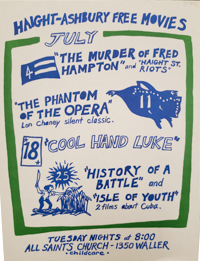 HAIGHT-ASHBURY FREE MOVIES
JULY
4
"THE MURDER OF FRED
HAMPTON" and 'HAIGHT ST.
RIOTS'
"THE PHANTOM
OF THE OPERA"
Lon Chaney silent classic.
11
18
"COOL HAND LUKE"
25
"HISTORY OF A
BATTLE" and
"ISLE OF YOUTH"
2 films about Cuba.
TUESDAY NIGHTS at 8:00
ALL SAINTS CHURCH - 1350 WALLER
• childcare •